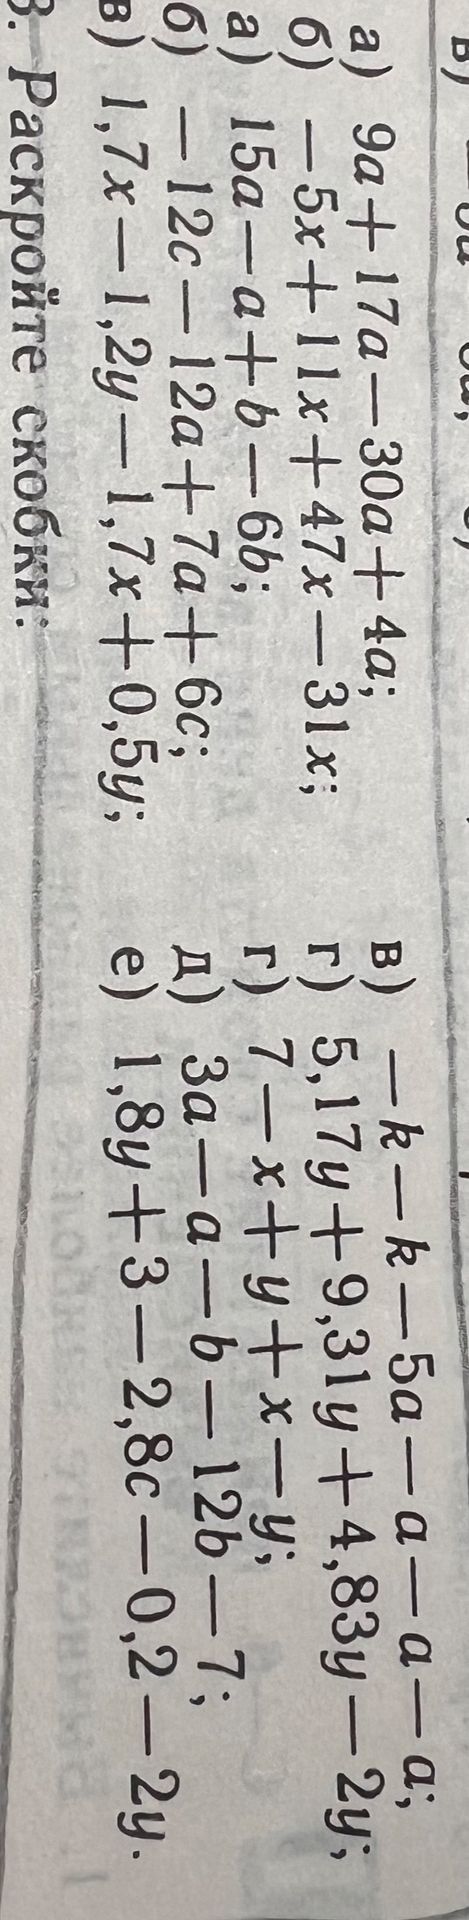 а) 9a+17a—30a+4a; в) —k—k—5a—a—a—a;
б) —5x+11x+47x—31x; г) 5,17y+9,31y+4,83y—2y;
а) 15a—a+b—6b; г) 7—x+y+x—y;
б) —12c—12a+7a+6c; д) 3a—a—b—12b—7;
в) 1,7x—1,2y—1,7x+0,5y; е) 1,8y+3—2,8c—0,2—2y.
3. Раскройте скобки: